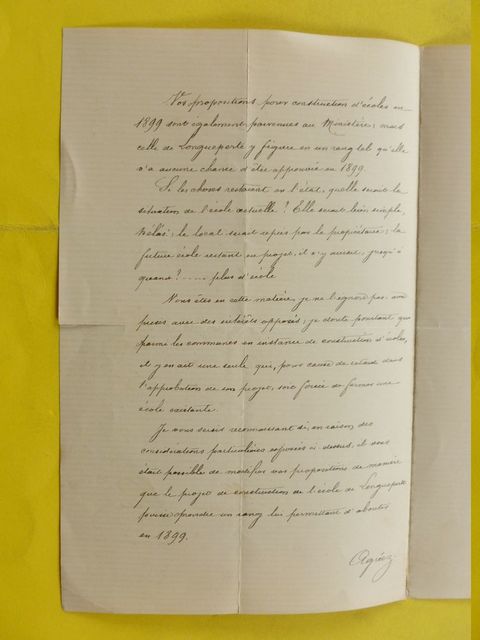 Vos propositions pour construction d'écoles en
1899 sont également parvenues au Ministère; mais
celle de Longueperte y figure en un rang tel qu'elle
n'a aucune chance d'être approuvée en 1899.
Si les choses restaient en l'état, quelle serait la
situation de l'école actuelle? Elle serait bien simple,
hélas; le local serait repris par le propriétaire; la
future école restant en projet, il n'y aurait, jusqu'à
quand?..... plus d'école
Vous êtes en cette matière, je ne l'ignore pas, aux
prises avec des intérêts opposés; je doute pourtant que
parmi les communes en instance de construction d'écoles,
il y en ait une seule qui, pour cause de retard dans
l'approbation de son projet, soit forcée de fermer une
école existante.
Je vous serais reconnaissant si, en raison des
considérations particulières exposées ci-dessus, il vous
était possible de modifier vos propositions de manière
que le projet de construction de l'école de Longueperte
puisse prendre un rang lui permettant d'aboutir
en 1899.